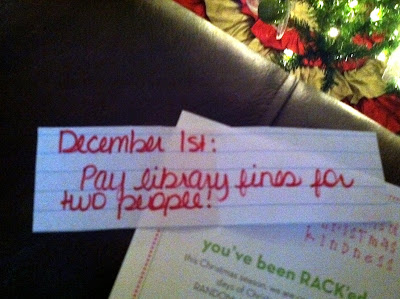 December 1st:
Pay library fines for
two people!
christmas
kindness
you've been RACK'ed
this Christmas season, we are
days of Christ
RANDOM